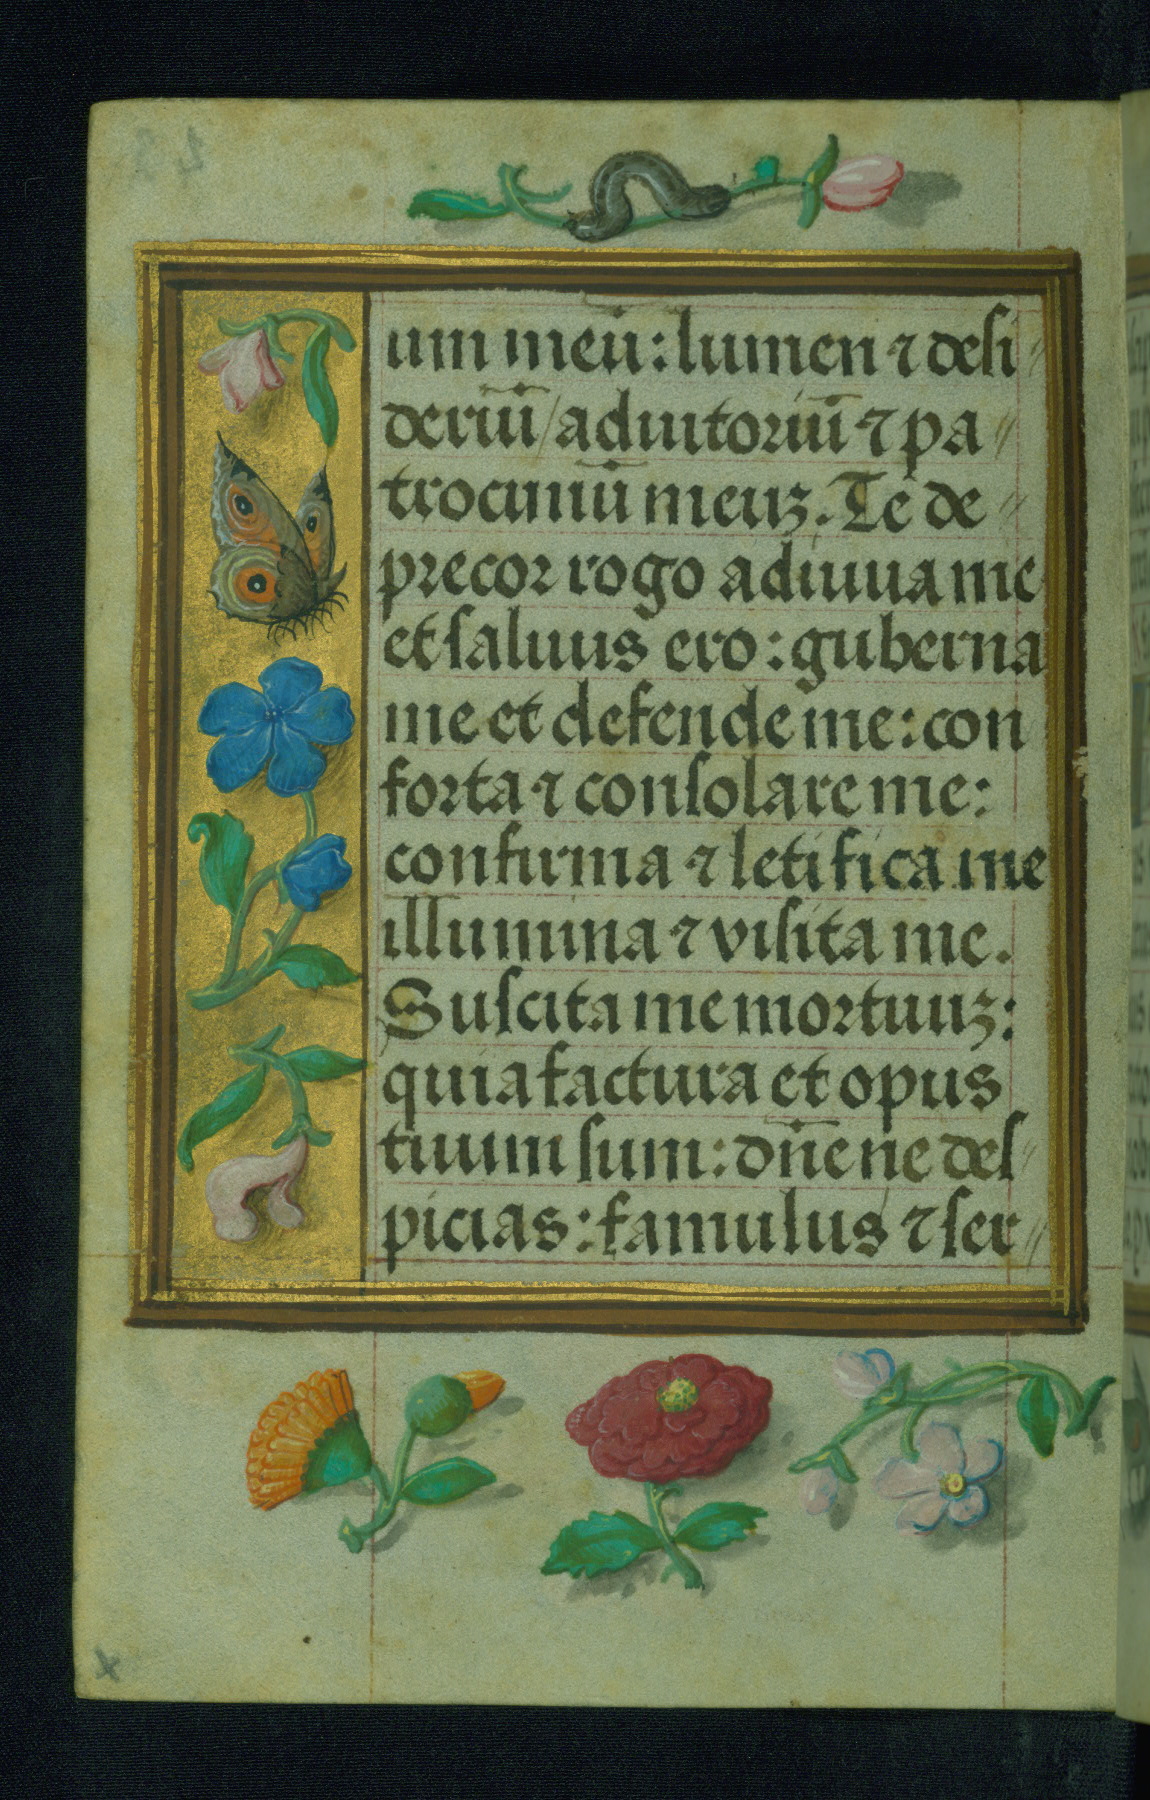 um meū: lumen ⁊ desi
deriū / adiutoriū ⁊ pa
trociniū meuꝫ. Te de
precor rogo adiuua me
et saluus ero: guberna
me et defende me: con
forta ⁊ consolare me:
confirma ⁊ letifica me
illumina ⁊ visita me.
Suscita me mortuuꝫ:
quia factura et opus
tuum sum: dn̄e ne des
picias: famulus ⁊ ser